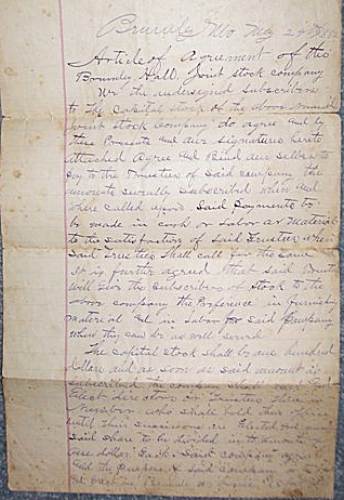 Brumley Mo May 24th
Article of Agreement of the
Brumley Hall Joint stock company
We the undersigned Subscribers
to the capital stock of the above named
Joint stock Company do agree and by
these Presents and our signatures hereto
attached Agree and Bind our selves to
pay to the Trustees of said company the
amounts severally Subscribed when and
where called upon Said payments to
be made in cash or Labor or Material
to the satisfaction of Said Trustees when
said Trustees shall call for the same
It is further agreed that said
will give the Subscribers of stock to the
above company the Preference in furnishing
material in Labor for said Company
when they can do as well
The capital stock shall be one hundred
dollars and as soon as said amount is
subscribed the company shall
Elect Directors or Trustees three in
Number who shall hold their office
until their successors are Elected
said share to be divided in to amounts
one dollar Each said company agree
and the purpose of said Company